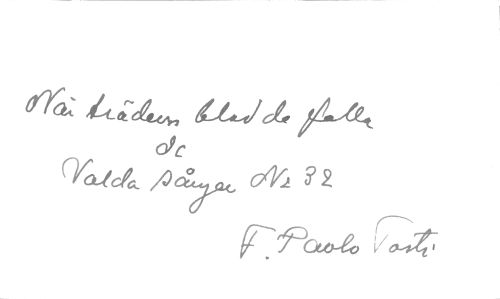 När trädens blad de falla
Dc
Valda sånger Nr 32
F. Paolo Tosti